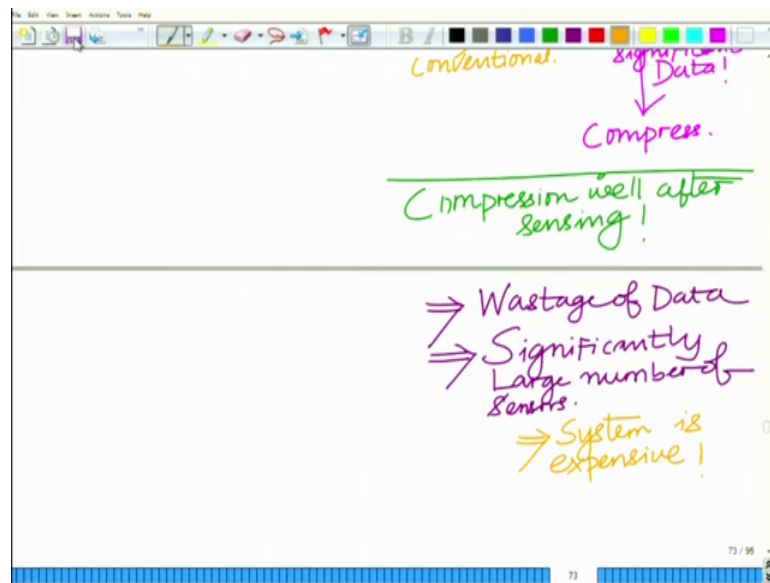 File Edit View Insert Actions Tools Help
B I
Conventional.
Significant
Data!
Compress.
Compression well after
sensing!
⇒ Wastage of Data
⇒ Significantly
Large number of
sensors.
⇒ System is
expensive!
73 / 95
73